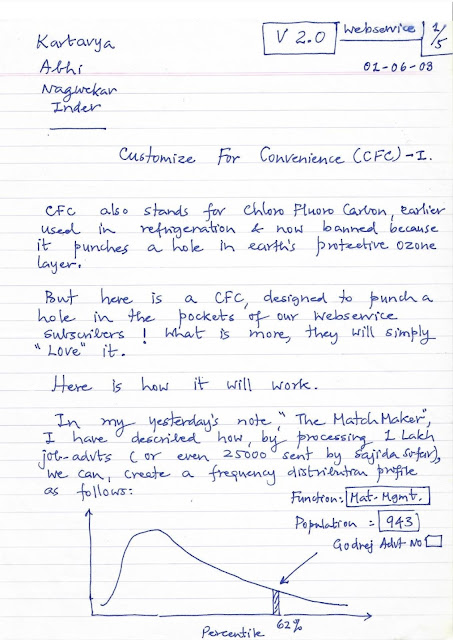 Kartavya
V 2.0
Webservice
1/5
Abhi
01-06-08
Nagwekar
Inder
Customize For Convenience (CFC)-I.
CFC also stands for Chloro Fluoro Carbon, earlier
used in refrigeration & now banned because
it punches a hole in earth's protective ozone
layer.
But here is a CFC, designed to punch a
hole in the pockets of our webservice
subscribers! What is more, they will simply
"Love" it.
Here is how it will work.
In my yesterday's note, "The MatchMaker",
I have described how, by processing 1 Lakh
job-advts (or even 25000 sent by Sajida sofar),
we can, create a frequency distribution profile
as follows:
Function: Mat. Mgmt.
Population = 943
Godrej Advt No
62%
Percentile